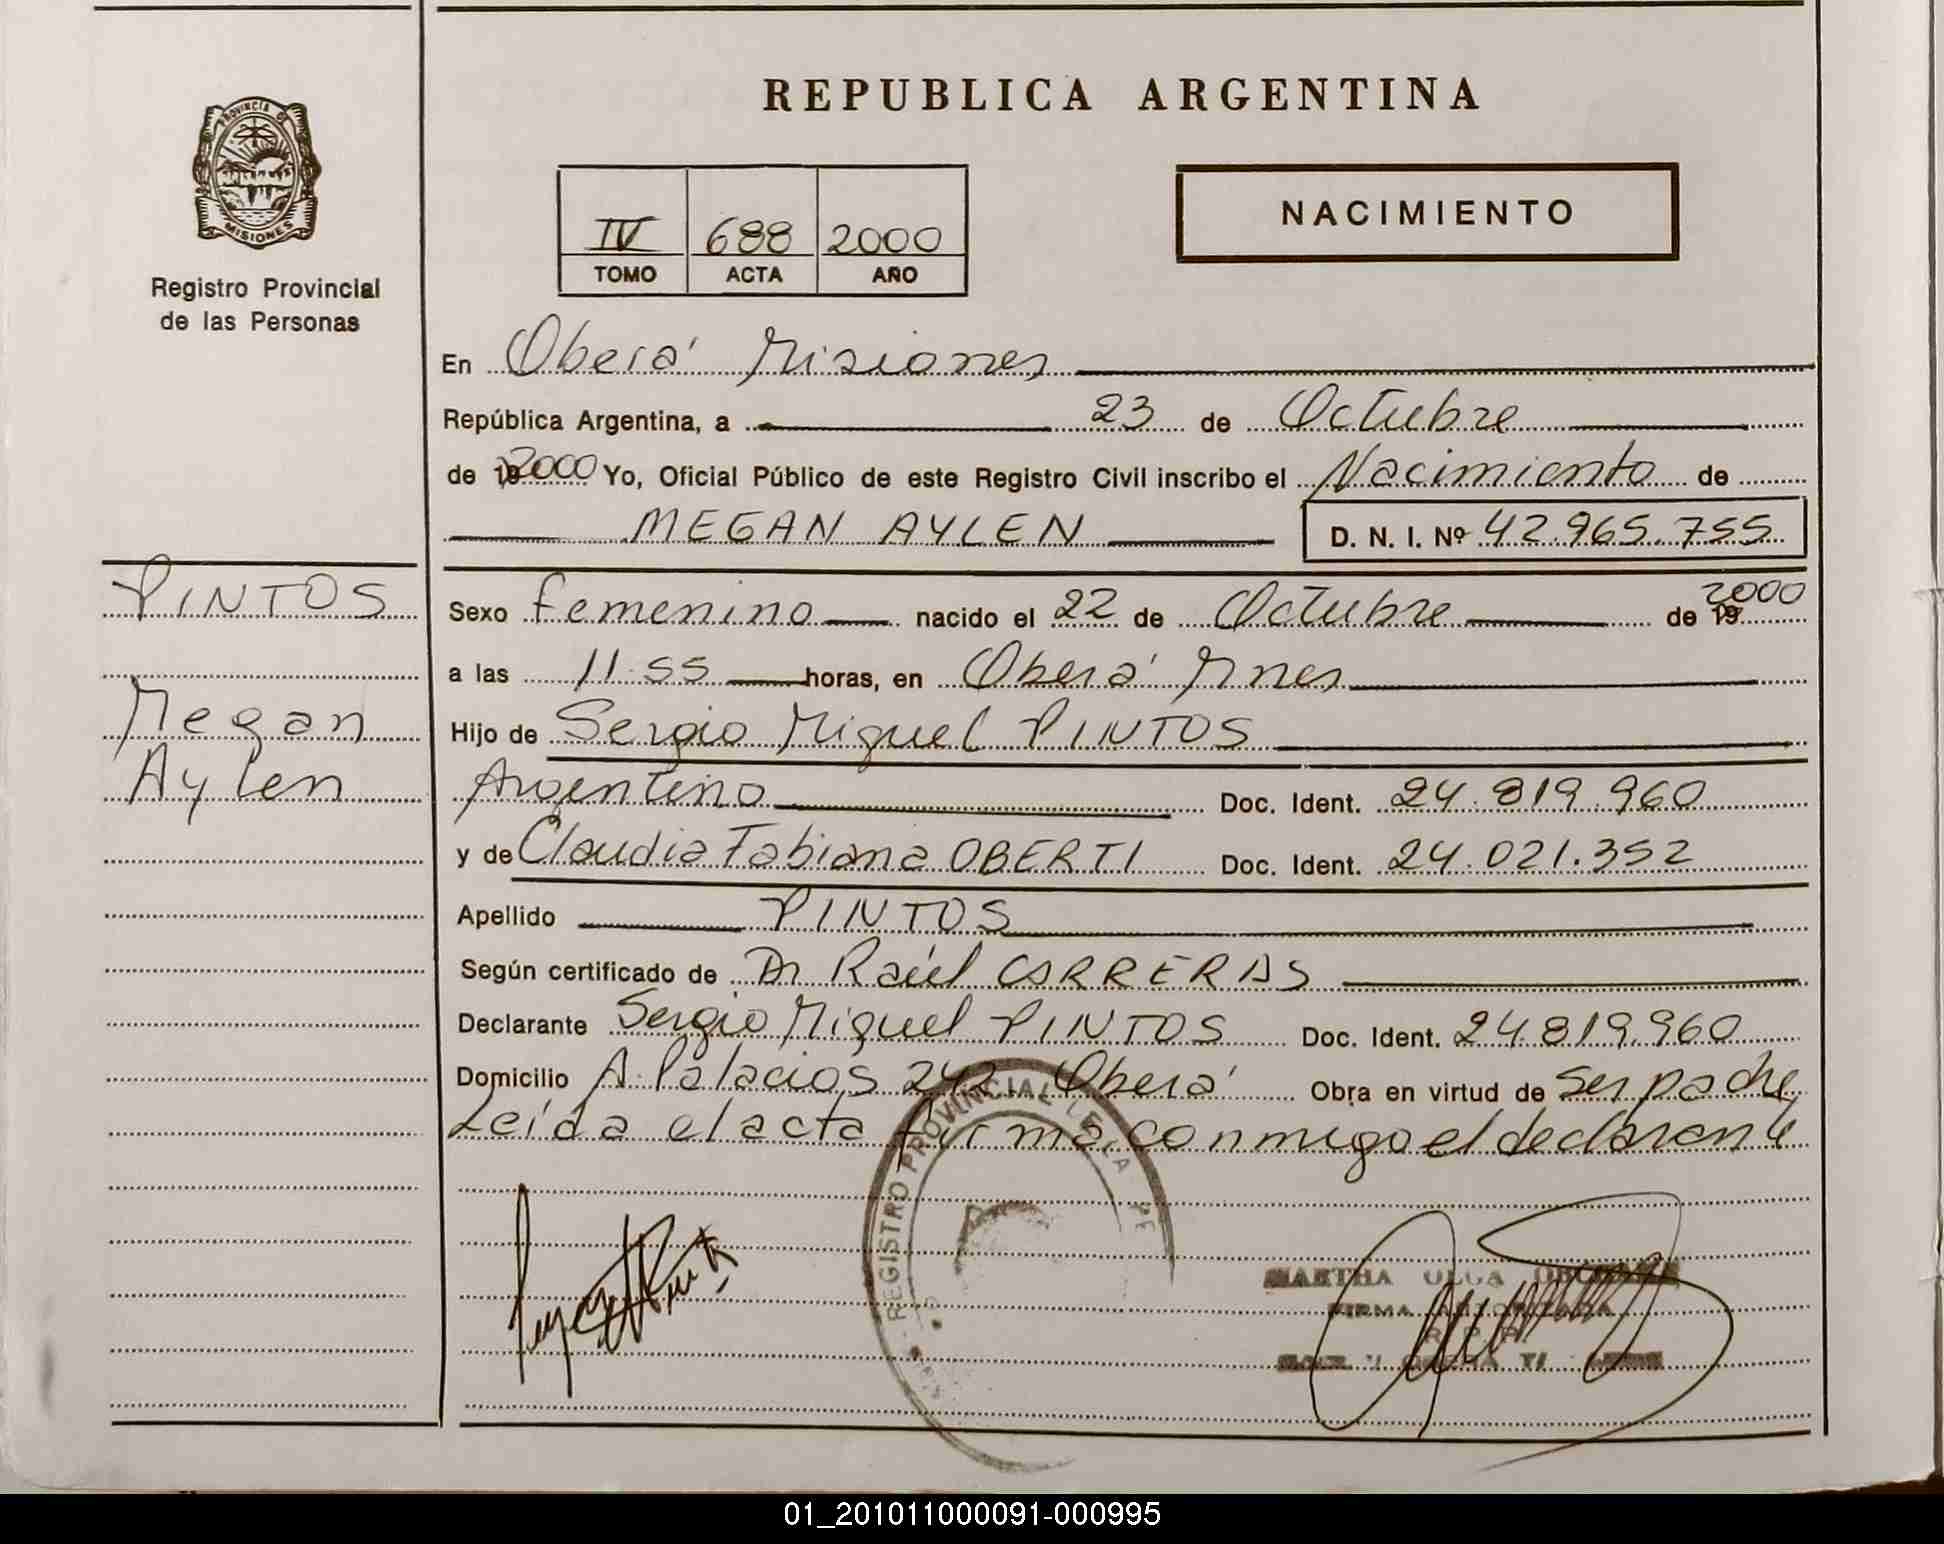 REPUBLICA ARGENTINA
PROVINCIA DE
MISIONES
Registro Provincial
de las Personas
IV 688 2000
TOMO ACTA AÑO
NACIMIENTO
En Oberá Misiones
República Argentina, a 23 de Octubre
de 19 2000 Yo, Oficial Público de este Registro Civil inscribo el Nacimiento de
MEGAN AYLEN D. N. I. Nº 42.965.755
PINTOS
Megan
Aylen
Sexo femenino nacido el 22 de Octubre de 19 2000
a las 11.55 horas, en Oberá Mnes
Hijo de Sergio Miguel PINTOS
Argentino Doc. Ident. 24.819.960
y de Claudia Fabiana OBERTI Doc. Ident. 24.021.352
Apellido PINTOS
Según certificado de Dr Raúl CARRERAS
Declarante Sergio Miguel PINTOS Doc. Ident. 24.819.960
Domicilio A. Palacios 242 Oberá Obra en virtud de ser padre
Leída el acta firma conmigo el declarante
REGISTRO PROVINCIAL DE LA
MARTHA OLGA
FIRMA AUTORIZADA
R. P. P.
01_201011000091-000995